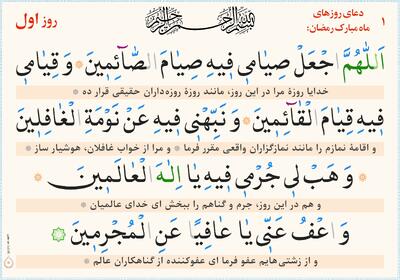 ۱
دعای روزهای
ماه مبارک رمضان:
بسم الله الرحمن الرحیم
روز اول
اَللّٰهُمَّ جْعَلْ صِیامی فیهِ صِیامَ الصّٰائِمینَ * وَ قِیامی
خدایا روزهٔ مرا در این روز، مانند روزهٔ روزه‌داران حقیقی قرار ده *
فیهِ قِیامَ الْقٰائِمینَ * وَ نَبِّهْنی فیهِ عَنْ نَوْمَةِ الْغافِلینَ
و اقامهٔ نمازم را مانند نمازگزاران واقعی مقرر فرما * و مرا از خواب غافلان، هوشیار ساز *
* وَ هَبْ لی جُرْمی فیهِ یا اِلٰهَ الْعالَمینَ *
و هم در این روز، جرم و گناهم را ببخش ای خدای عالمیان *
وَ اعْفُ عَنّی یا عافِیًا عَنِ الْمُجْرِمینَ
و از زشتی‌هایم عفو فرما ای عفوکننده از گناهکاران عالم *